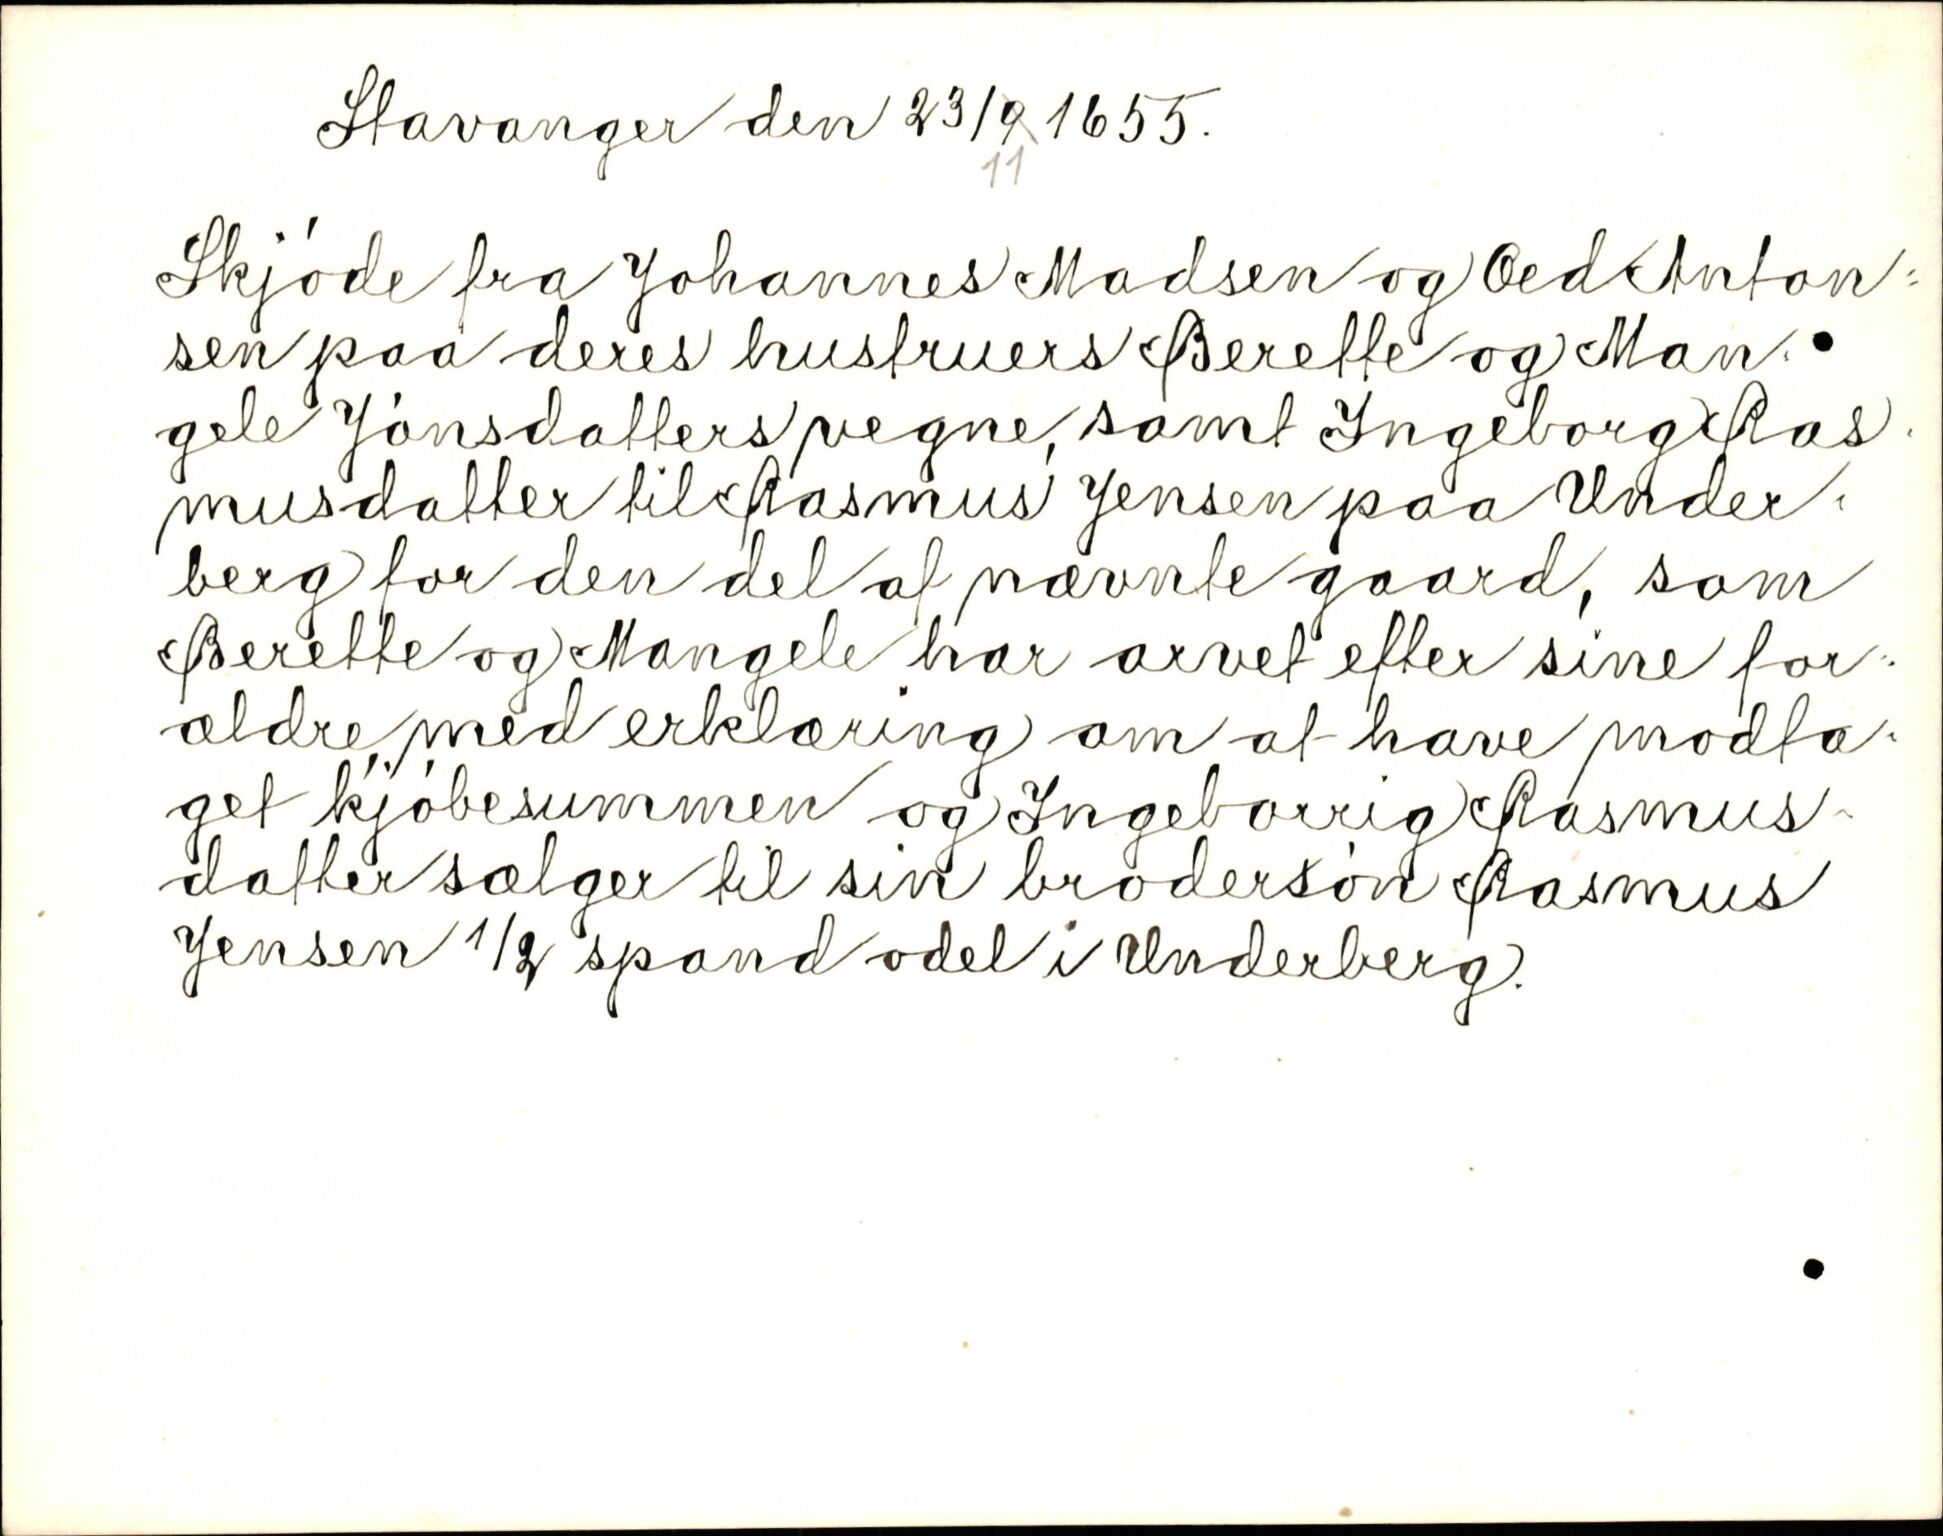 Stavanger den 23/9 1655.
11
Skjóde fra Johannes Madsen og Oed Anton=
sen paa deres hustruers Berette og Man-
gele Jónsdatters vegne, samt Ingeborg Ras-
musdatter til Rasmus Jensen paa Under-
berg for den del af nævnte gaard, som
Berette og Mangele har arvet efter sine for-
ældre, med erklæring om at have modta-
get kjóbesummen og Ingeborrig Rasmus-
datter sælger til sin brodersón Rasmus
Jensen 1/2 spand odel i Underberg.